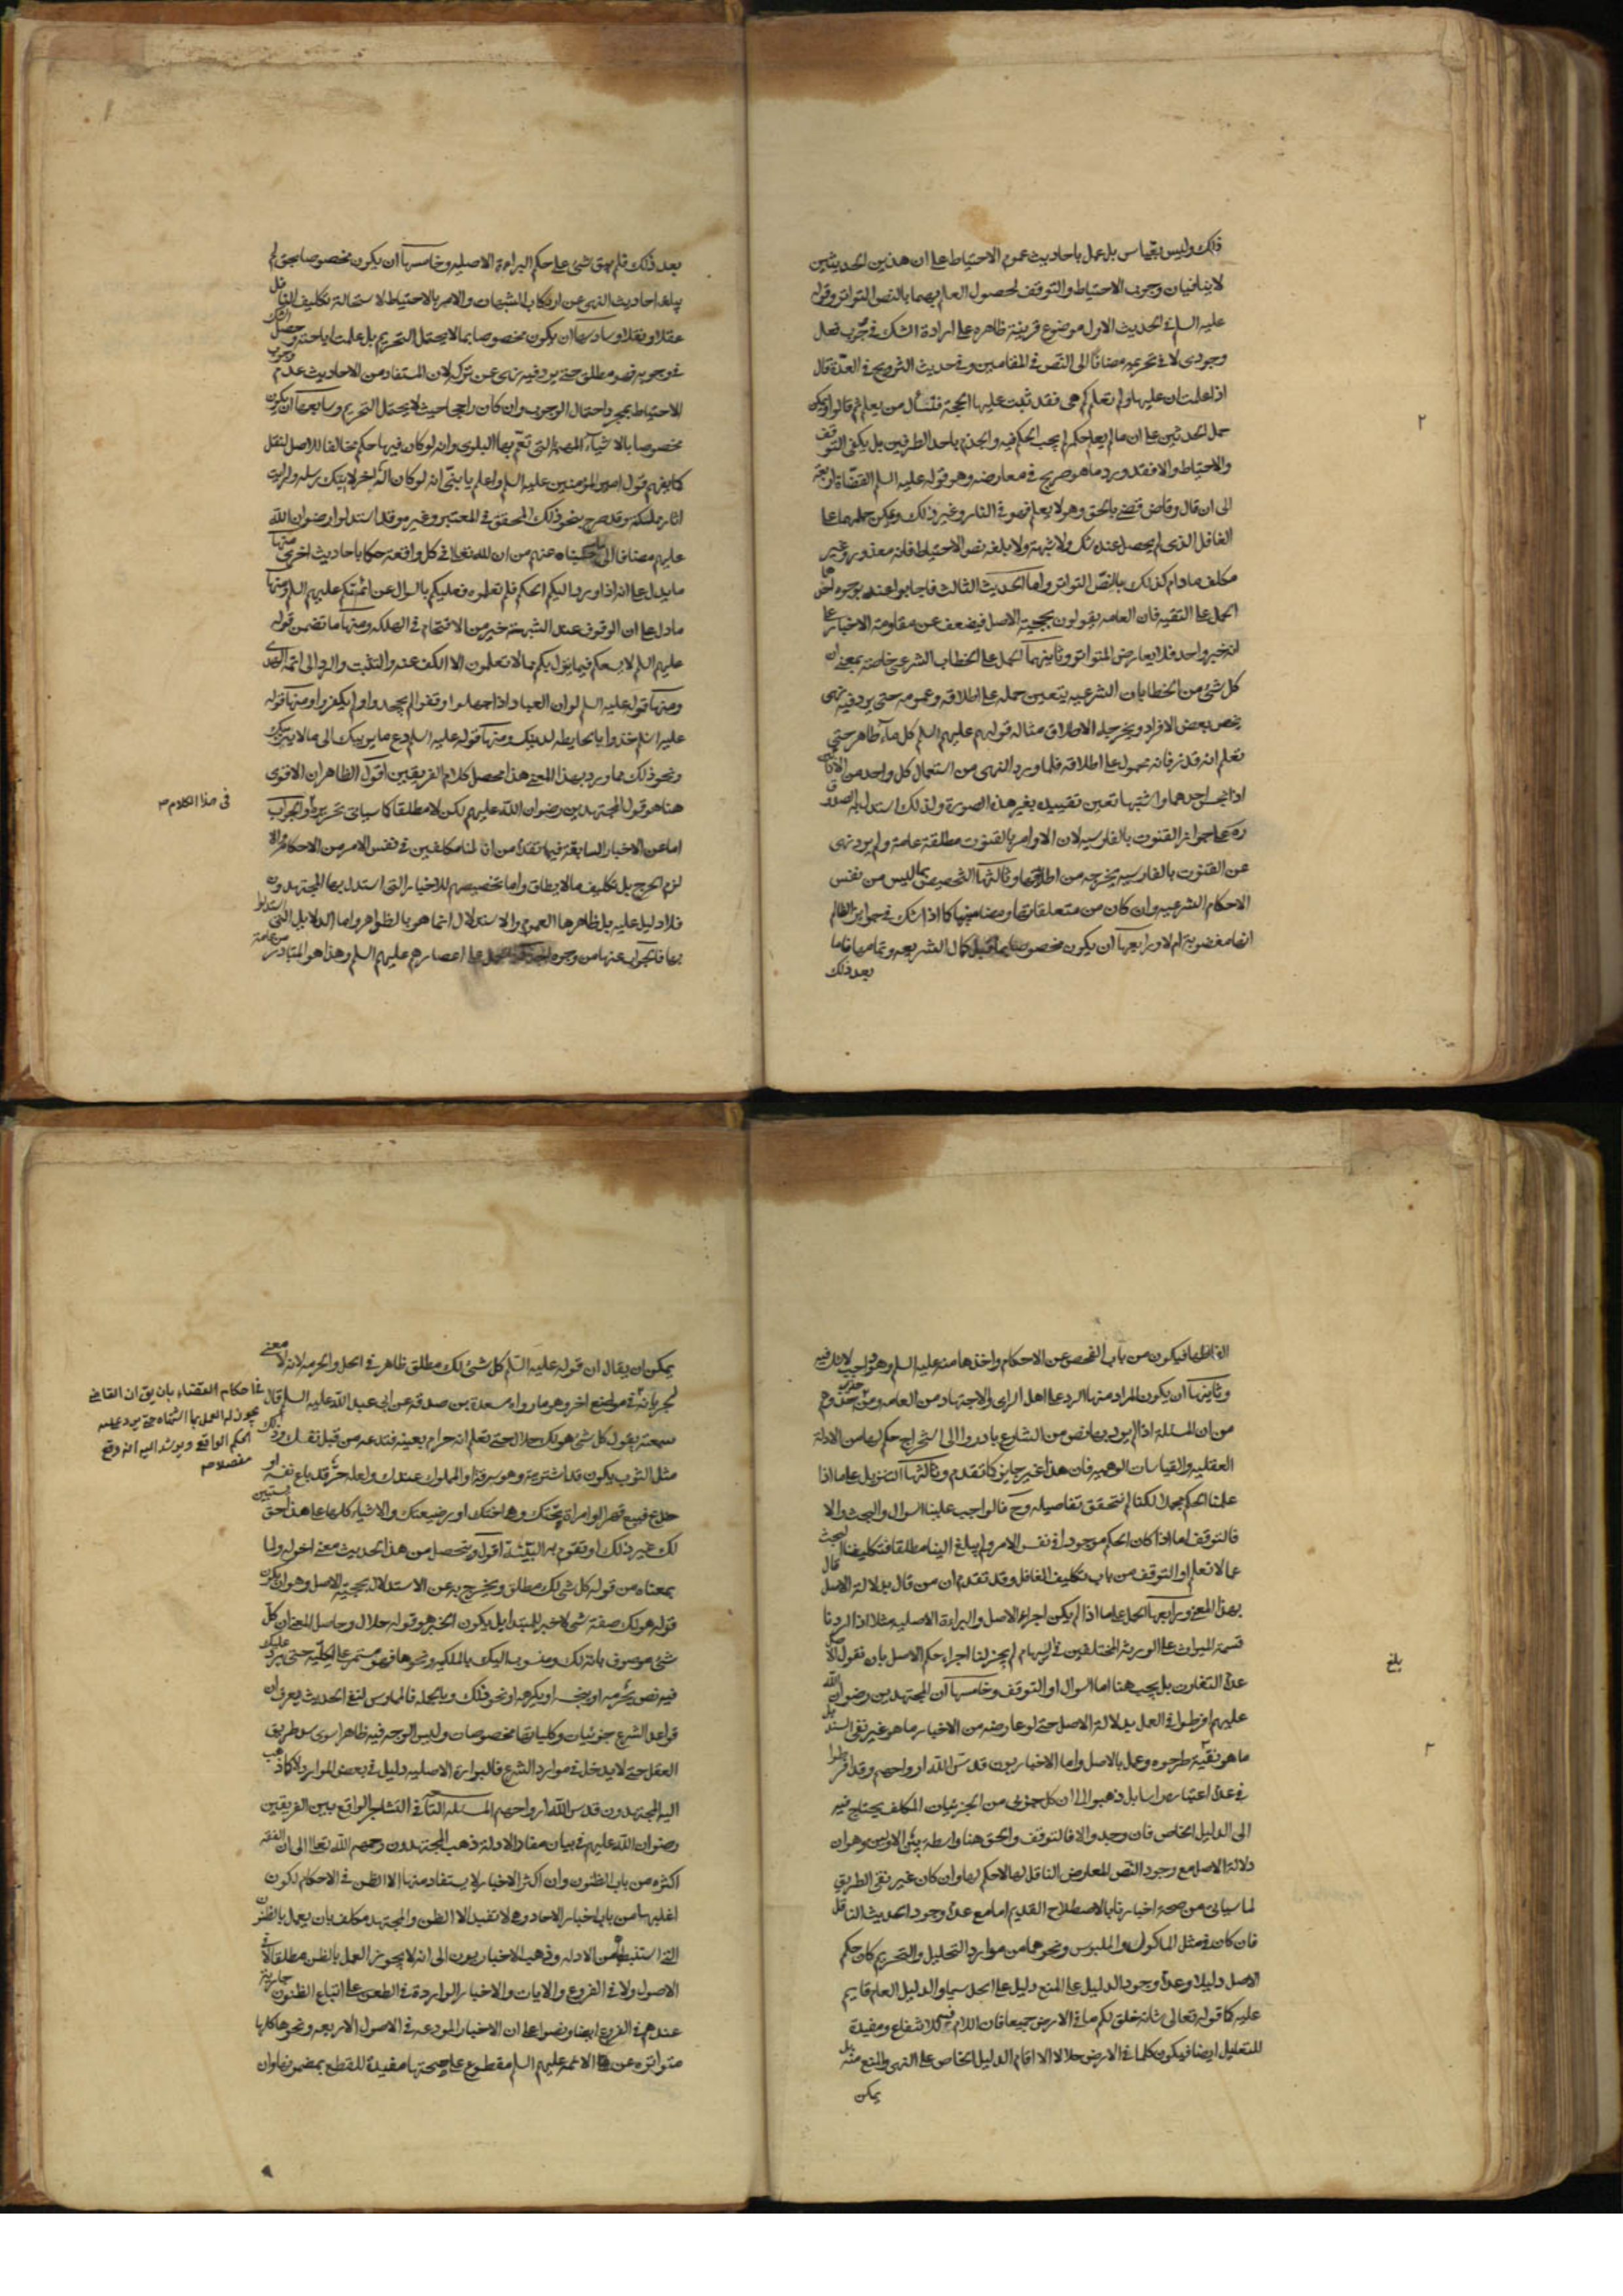 ذلك وليس بقياس بل عمل باحاديث عموم الاحتياط على ان هذين الحديثين
لا ينافيان وجوب الاحتياط والتوقف لحصول العلم بهما بالنص المتواتر وقوله
عليه السلم في الحديث الاول موضوع قرينة ظاهرة على ارادة الشك في وجوب فعل
وجودى لا في تحريمه مضافا الى النص في المقامين وفي حديث التزويج في العدة قال
اذا علمت ان عليها ولم تعلم كم هي فقد ثبت عليها الحجة فتسأل من يعلم ثم قالوا ويمكن
حمل الحديثين على ان ما لم يعلم حكمه لم يجب الحكم فيه والجزم باحد الطرفين بل يكفى التوقف
والاحتياط والا فقد ورد ما هو صريح في معارضه وهو قوله عليه السلم القضاة اربعة
الى ان قال وقاض قضى بالحق وهو لا يعلم فهو في النار وغير ذلك ويمكن حملهما على
الغافل الذى لم يحصل عنده شك ولا شبهة ولا بلغه نص الاحتياط فانه معذور وغير
مكلف مادام كذلك بالنص المتواتر واما الحديث الثالث فاجابوا عنه بوجوه احدها
الحمل على التقية فان العامه يقولون بحجية الاصل فيضعف عن مقاومة الاخبار على
انه خبر واحد فلا يعارض المتواتر وثانيهما الحمل على الخطاب الشرعى خاصة بمعنى ان
كل شئ من الخطابات الشرعيه يتعين حمله على اطلاقه وعمومه حتى يرد فيه نهى
يخص بعض الافراد ويخرجه عن الاطلاق مثاله قولهم عليهم السلم كل ماء طاهر حتى
تعلم انه قذر فانه محمول على اطلاقه فلما ورد النهى من استعمال كل واحد من الانائين
اذا نجس احدهما واشتبها تعين تقييده بغير هذه الصورة ولذلك استدل به الصدوق
ره على جواز القنوت بالفارسيه لان الاوامر بالقنوت مطلقة عامة ولم يرد نهى
عن القنوت بالفارسيه يخرجه من اطلاقها وثالثها التخصيص بما ليس من نفس
الاحكام الشرعيه وان كان من متعلقاتها ومضامينها كما اذا شك في جوائز الظالم
انها مغضوبة ام لا ورابعها ان يكون مخصوصا بما قبل كمال الشريعه وتمامها فاما
بعد ذلك
٢
بعد ذلك فلم يبق شئ على حكم البراءة الاصليه وخامسها ان يكون مخصوصا بمن لم
يبلغه احاديث النهى عن ارتكاب الشبهات والامر بالاحتياط لاستحالة تكليف الغافل
عقلا ونقلا وسادسها ان يكون مخصوصا بما لا يحتمل التحريم بل علمت اباحته وحصل الشك
في وجوبه فهو مطلق حتى يرد فيه نهى عن تركه لان المستفاد من الاحاديث عدم وجوب
الاحتياط بمجرد احتمال الوجوب وان كان راجحا حيث لا يحتمل التحريم وسابعها ان يكون
مخصوصا بالاشياء المهمة التى تعم بها البلوى وانه لو كان فيها حكم مخالف للاصل لنقل
كما يفهم قول امير المؤمنين عليه السلم واعلم يا بنى انه لو كان اله اخر لاتتك رسله ولرايت
اثار مملكته وقد صرح بنحو ذلك المحقق في المعتبر وغيره وقد استدلوا رضوان الله
عليهم مضافا الى ما حكيناه عنهم من ان لله تعالى في كل واقعة حكما باحاديث اخرى منها
ما يدل على انه اذا ورد اليكم الحكم فلم تعلموه فعليكم بالسوال عن ائمتكم عليهم السلم ومنها
مادل على ان الوقوف عند الشبهة خير من الاقتحام في الهلكه ومنها ما تضمن قوله
عليهم السلم لا يسعكم فيما ينزل بكم مما لا تعلمون الا الكف عنه والتثبت والرد الى ائمة الهدى
ومنها قوله عليه السلم لو ان العباد اذا جهلوا وقفوا لم يجحدوا ولم يكفروا ومنها قوله
عليه السلم خذوا بالحايطة لدينك ومنها قوله عليه السلم دع ما يريبك الى ما لا يريبك
ونحو ذلك مما ورد بهذا المعنى هذا محصل كلام الفريقين اقول الظاهر ان الاقوى
هنا هو قول المجتهدين رضوان الله عليهم لكن لا مطلقا كما سياتى تحريره والجواب
اما عن الاخبار السابقة فيما تقدم من انا لسنا مكلفين في نفس الامر من الاحكام والا
لزم الحرج بل تكليف ما لا يطاق واما تخصيصهم للاخبار التى استدل بها المجتهدون
فلا دليل عليه بل ظاهرها العموم والاستدلال انما هو بالظواهر واما الدلايل التى استدلوا
بها فالجواب عنها من وجوه احدها الحمل على اعصارهم عليهم السلم وهذا هو المتبادر من عامة
في هذا الكلام م
الفاظها فيكون من باب الفحص عن الاحكام واخذها منه عليه السلم وهو واجب لا شك فيه
وثانيها ان يكون المراد منها الرد على اهل الراى والاجتهاد من العامه ومن حذى حذوهم
من ان المسئلة اذا لم يرد بها نص من الشارع بادروا الى استخراج حكم لها من الادلة
العقليه والقياسات الوهميه فان هذا غير جايز كما تقدم وثالثها التنزيل على ما اذا
علمنا الحكم مجملا لكنا لم نتحقق تفاصيله وح فالواجب علينا السوال والبحث والا
فالتوقف اما اذا كان الحكم موجودا في نفس الامر ولم يبلغ الينا مطلقا فتكليفنا البحث
عما لا نعلم او التوقف من باب تكليف الغافل وقد تقدم ان من قال بدلالة الاصل قال
بهذا المعنى ورابعها الحمل على ما اذا لم يكن اجراء الاصل والبراءة الاصليه مثلا اذا اردنا
قسمة الميراث على الورثة المختلفين في السهام لم يجز لنا اجراء حكم الاصل بان نقول الاصل
عدم التفاوت بل يجب هنا اما السوال او التوقف وخامسها ان المجتهدين رضوان الله
عليهم افرطوا في العمل بدلالة الاصل حتى لو عارضه من الاخبار ما هو غير نقى السند بل
ما هو نقيه طرحوه وعمل بالاصل واما الاخباريون قدس الله ارواحهم وقد افرطوا
في عدم اعتباره راسا بل ذهبوا الى ان كل جزئى من الجزئيات المكلف يحتاج فيه
الى الدليل الخاص فان وجد والا فالتوقف والحق هنا واسطة بين الاولين وهو ان
دلالة الاصل مع وجود النص المعارض الناقل لها لا حكم لها وان كان غير نقى الطريق
لما سياتى من صحة اخبارنا بالاصطلاح القديم اما مع عدم وجود الحديث الناقل
فان كان في مثل الماكول والملبوس ونحوهما من موارد التحليل والتحريم كان حكم
الاصل دليلا وعدم وجود الدليل على المنع دليل على الحل سيما والدليل العام قايم
عليه كما قوله تعالى شانه خلق لكم ما في الارض جميعا فان اللام فيه للانتفاع ومفيدة
للتعليل ايضا فيكون كلما في الارض حلالا الا ما قام الدليل الخاص على النهى والمنع منه بل
يمكن
بلغ
٢
يمكن ان يقال ان قوله عليه السلم كل شئ لك مطلق ظاهر في الحل والحرمه لانه لا معنى
لجريانه في مواضع اخر وهو ما رواه مسعدة بن صدقه عن ابى عبد الله عليه السلم قال
سمعته يقول كل شئ هو لك حلال حتى تعلم انه حرام بعينه فتدعه من قبل نفسك وذلك
مثل الثوب يكون قد اشتريته وهو سرقة او المملوك عندك ولعله حر قد باع نفسه او
خدع فبيع قهرا او امراة تحتك وهي اختك او رضيعتك والاشياء كلها على هذا حتى يستبين
لك غير ذلك او تقوم به البينة اقول ويتحصل من هذا الحديث معنى اخر له ولما
بمعناه من قوله كل شئ لك مطلق ويخرج به عن الاستدلال بحجية الاصل وهو ان يكون
قوله هو لك صفة شئ لا خبر للمبتدا بل يكون الخبر هو قوله حلال وحاصل المعنى ان كل
شئ موصوف بانه لك ومنسوب اليك بالملكيه ونحوها فهو مستمر على الحلية حتى يرد عليك
فيه نص يحرمه او ينجسه او يكرهه او نحو ذلك وبالجمله فالممارس لتتبع الحديث يعرف ان
قواعد الشرع جزئيات وكلياتها مخصوصات وليس الوجه فيه ظاهرا سوى سد طريق
العقل حتى لا يدخل في موارد الشرع فالبراءة الاصليه دليل في بعض الموارد لا كما ذهب
اليه المجتهدون قدس الله ارواحهم المسئله الثانية في التشاجر الواقع بين الفريقين
رضوان الله عليهم في بيان مفاد الادلة ذهب المجتهدون رحمهم الله تعالى الى ان الفقه
اكثره من باب الظنون وان اكثر الاخبار لا يستفاد منها الا الظن في الاحكام لكون
اغلبها من باب اخبار الاحاد وهي لا تفيد الا الظن والمجتهد مكلف بان يعمل بالظن
التى استنبطه من الادله وذهب الاخباريون الى انه لا يجوز العمل بالظن مطلقا لا في
الاصول ولا في الفروع والايات والاخبار الواردة في الطعن على اتباع الظنون جارية
عندهم في الفروع ايضا ونصوا على ان الاخبار المودعه في الاصول الاربعه ونحوها كلها
متواتره عن الائمة عليهم السلم مقطوع على صحتها مفيدة للقطع بمضمونها وان
في احكام القضاء بان يق ان القاضى
يجوز له العمل بها حتى يرد عليه
الحكم الواقع ويرشد اليه انه وقع
مفصلا م